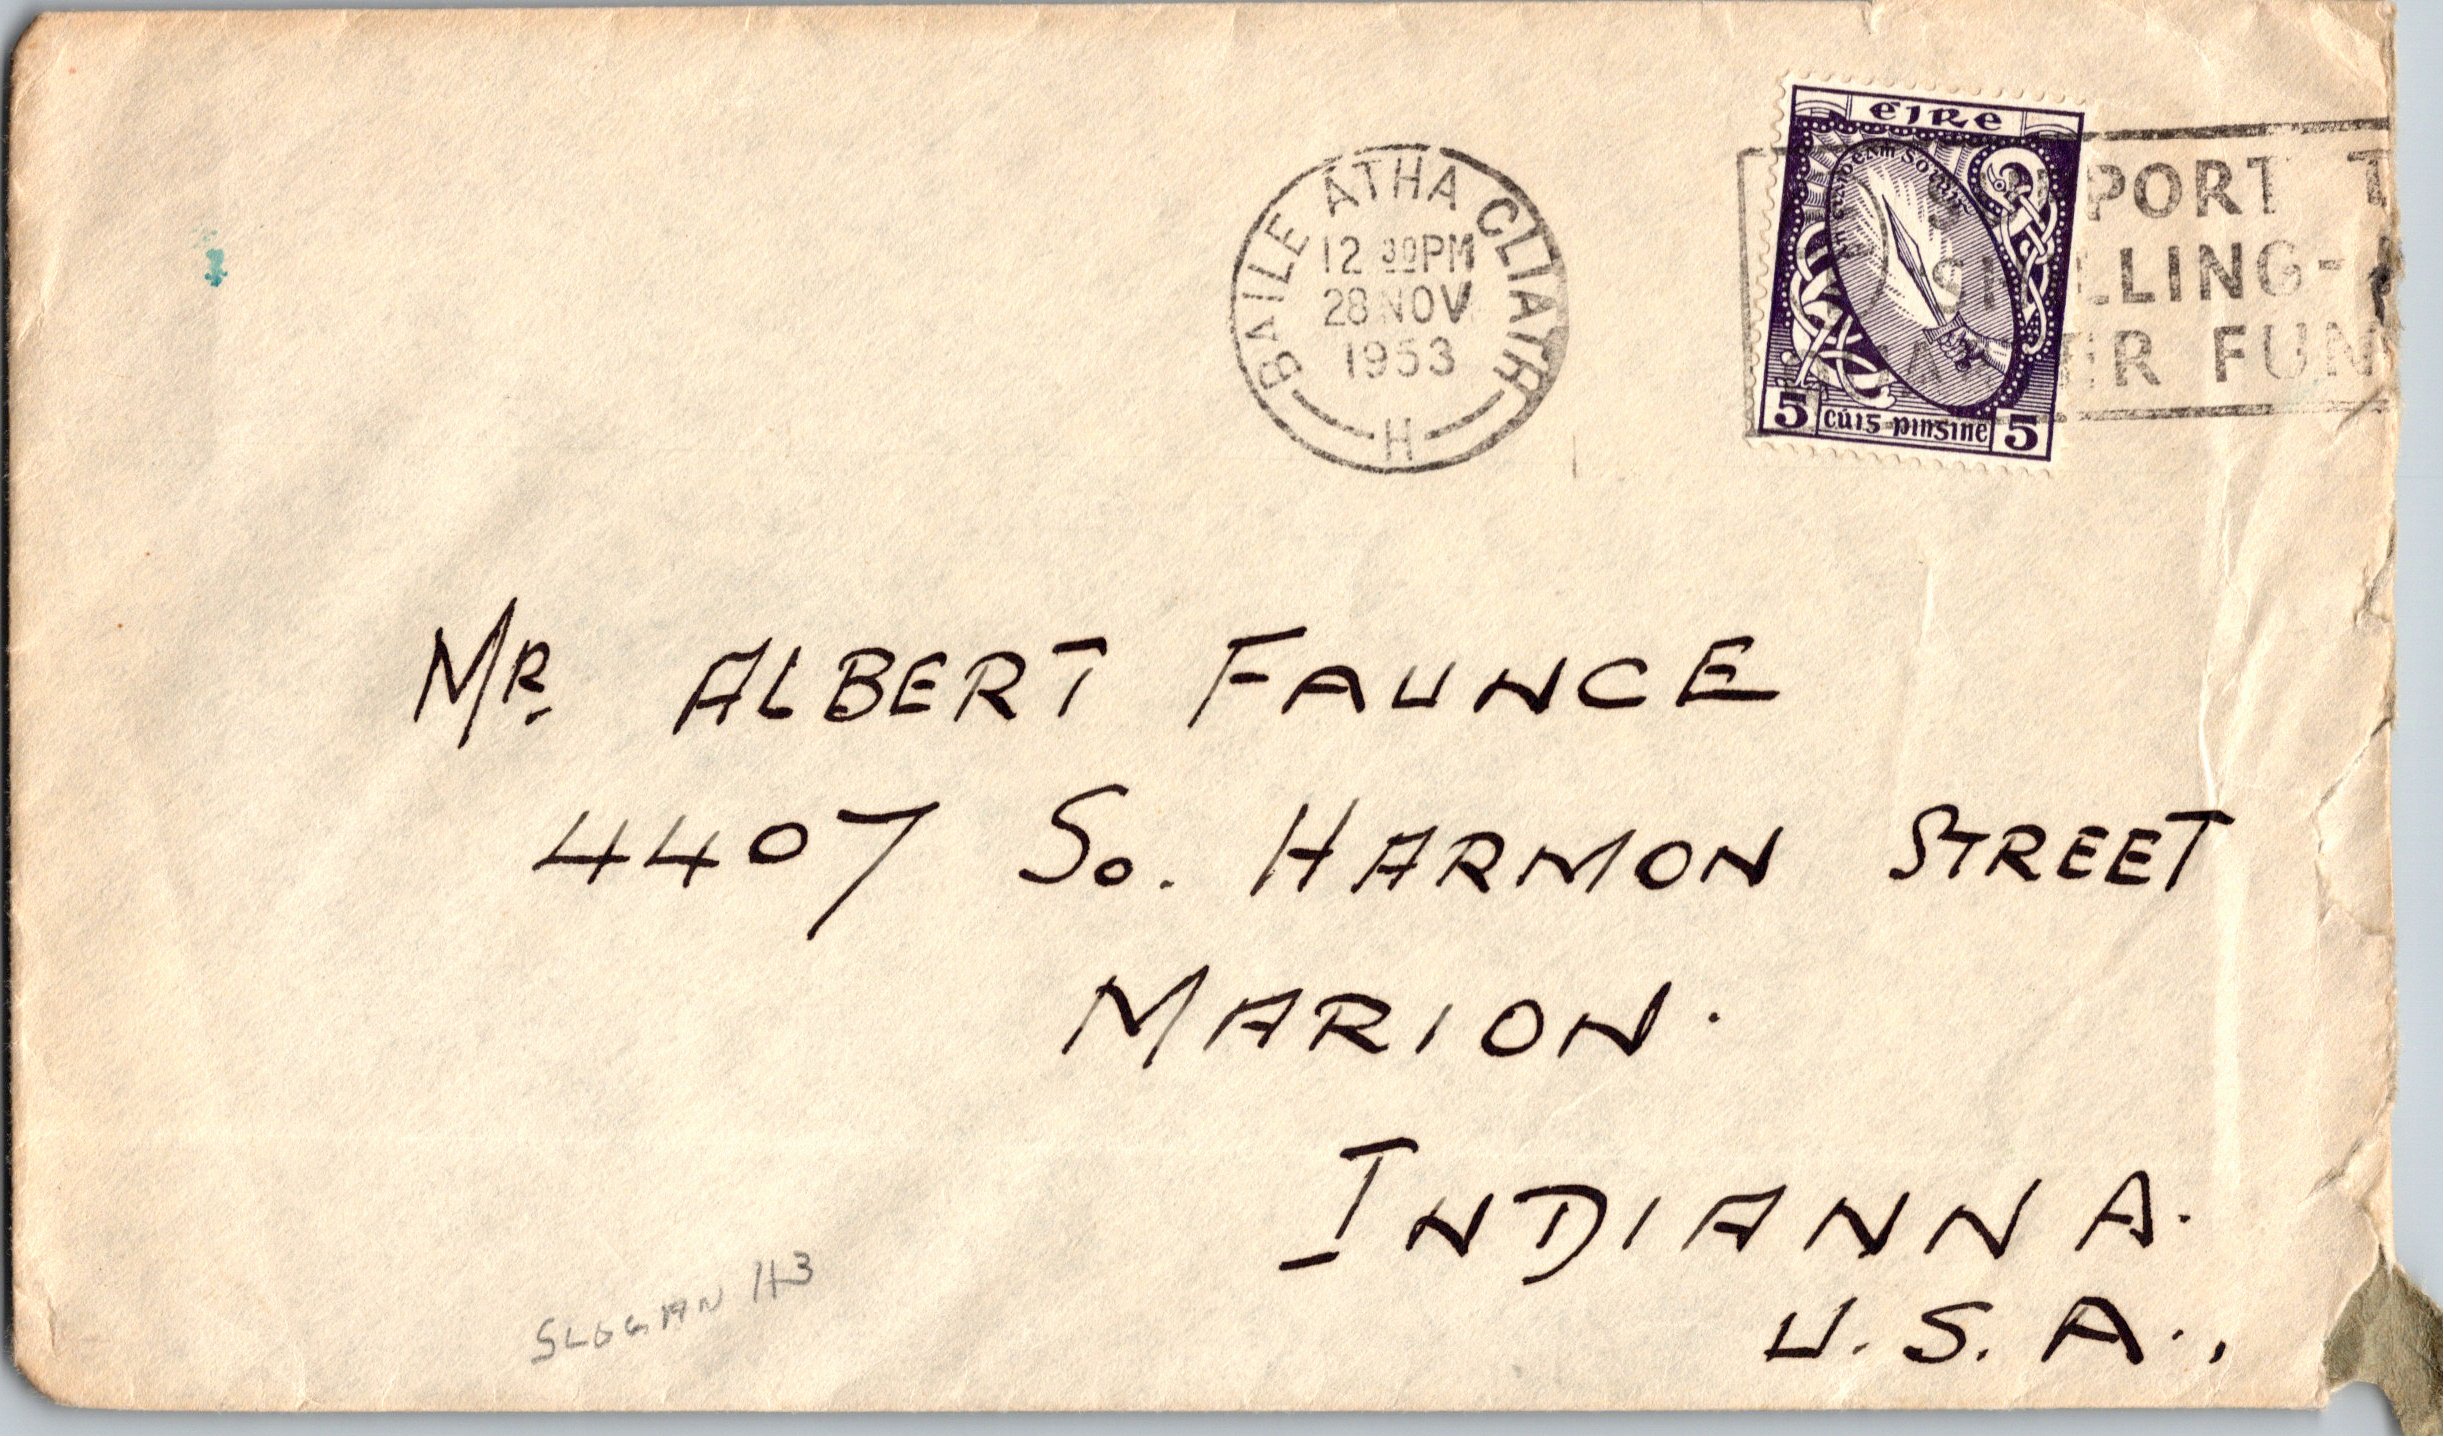 BAILE ÁTHA CLIATH
12 30PM
28 NOV
1953
H
éire
5 cúig pingine 5
PORT
LLING-
ER FUN
MR. ALBERT FAUNCE
4407 So. HARMON STREET
MARION.
INDIANNA.
U.S.A.,
SLOGAN H3